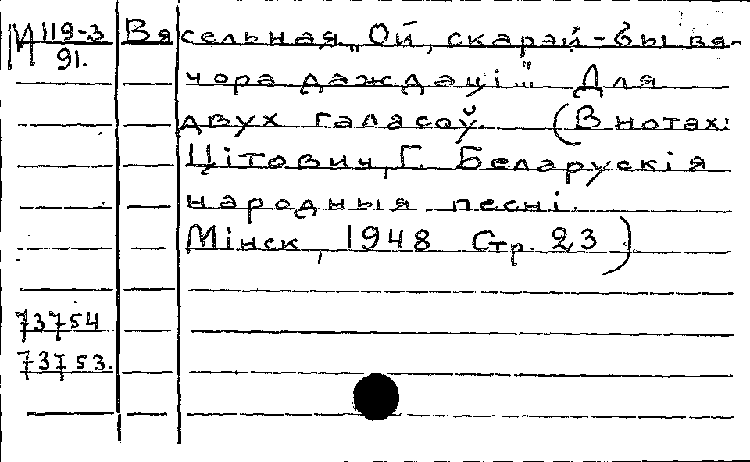 М 119-3 Вясельная „Ой, скарэй-бы вя-
91.
чора даждаці". Для
двух галасоў. (В нотах:
Цітович, Г. Беларускія
народныя песні.
Мінск, 1948 Стр. 23)
73754
73753.